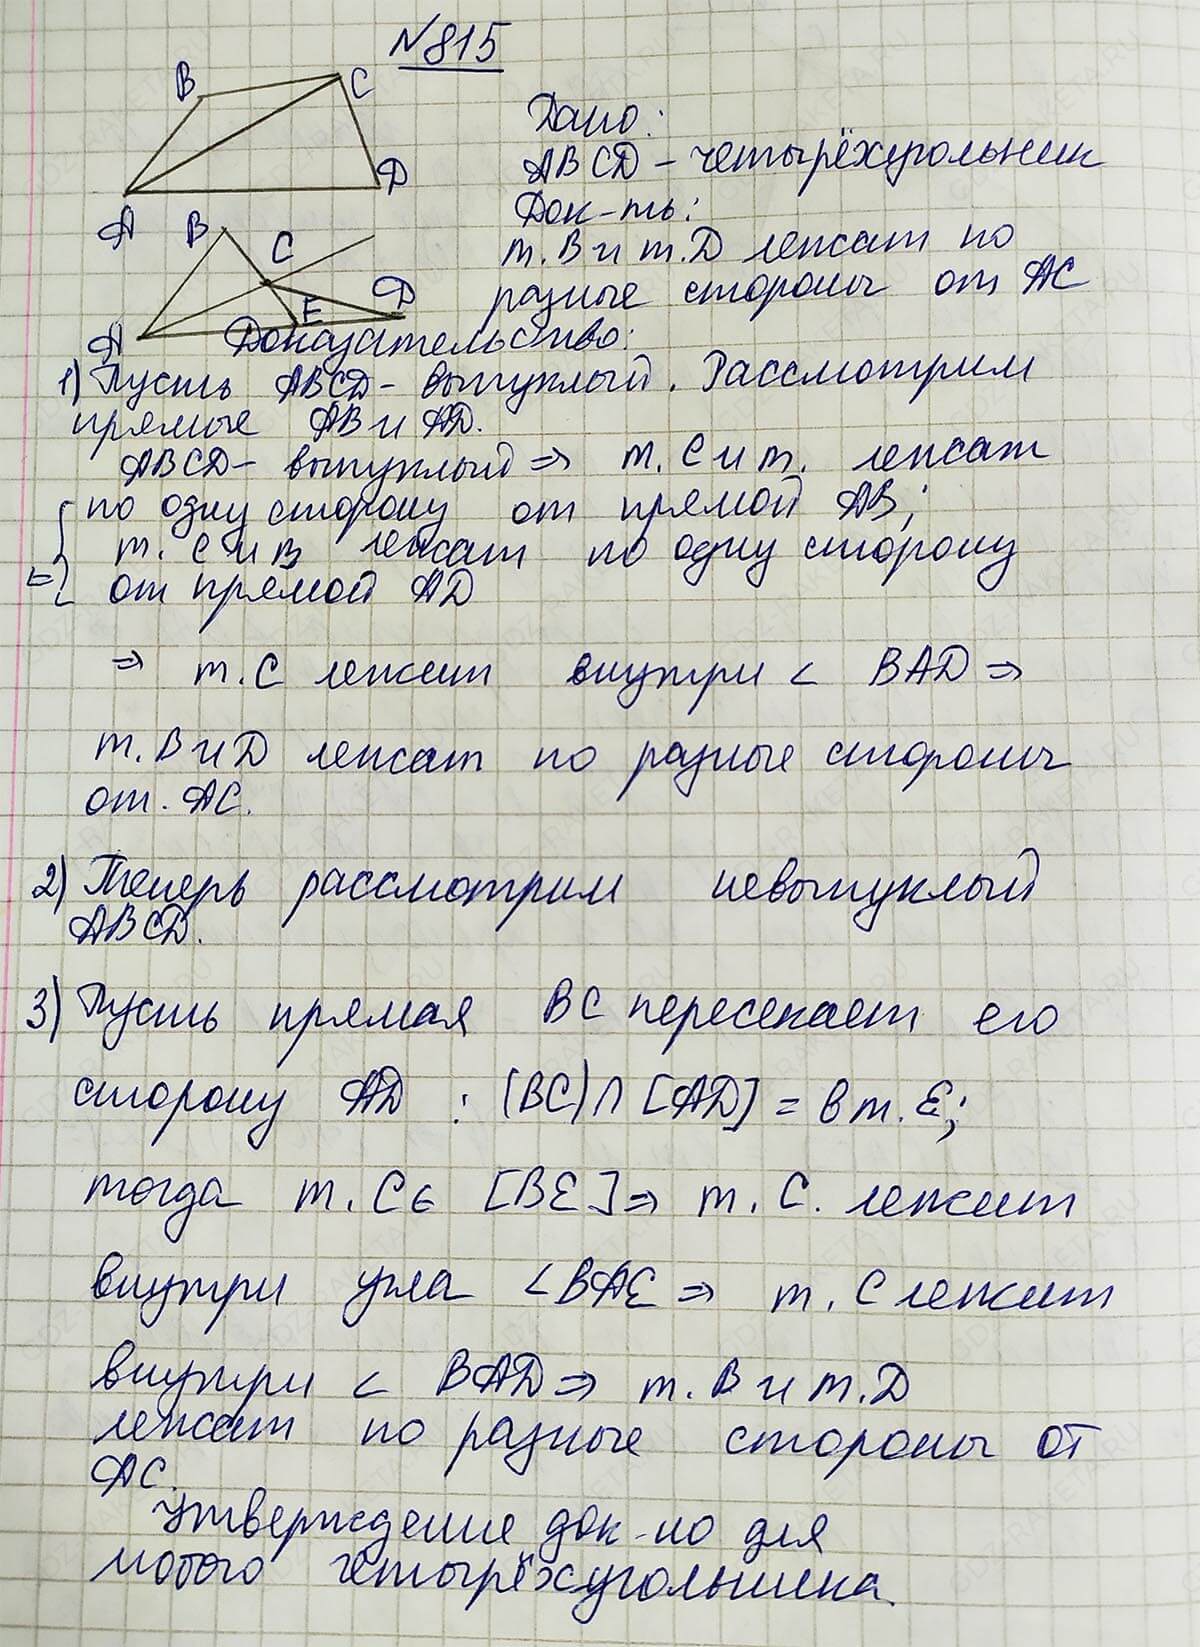 №815
B
C
A
D
Дано:
ABCD – четырёхугольник
Док-ть:
т. B и т. D лежат по
разные стороны от AC
B
C
D
E
A
Доказательство:
1) Пусть ABCD – выпуклый. Рассмотрим
прямые AB и AD.
ABCD – выпуклый ⇒ т. C и т. лежат
по одну сторону от прямой AB;
т. C и B лежат по одну сторону
от прямой AD
⇒ т. C лежит внутри < BAD ⇒
т. B и D лежат по разные стороны
от. AC.
2) Теперь рассмотрим невыпуклый
ABCD.
3) Пусть прямая BC пересекает его
сторону AD : [BC) ∩ [AD] = в т. E;
тогда т. C ∈ [BE] ⇒ т. C. лежит
внутри угла < BAE ⇒ т. C лежит
внутри < BAD ⇒ т. B и т. D
лежат по разные стороны от
AC.
Утверждение док-но для
любого четырёхугольника.